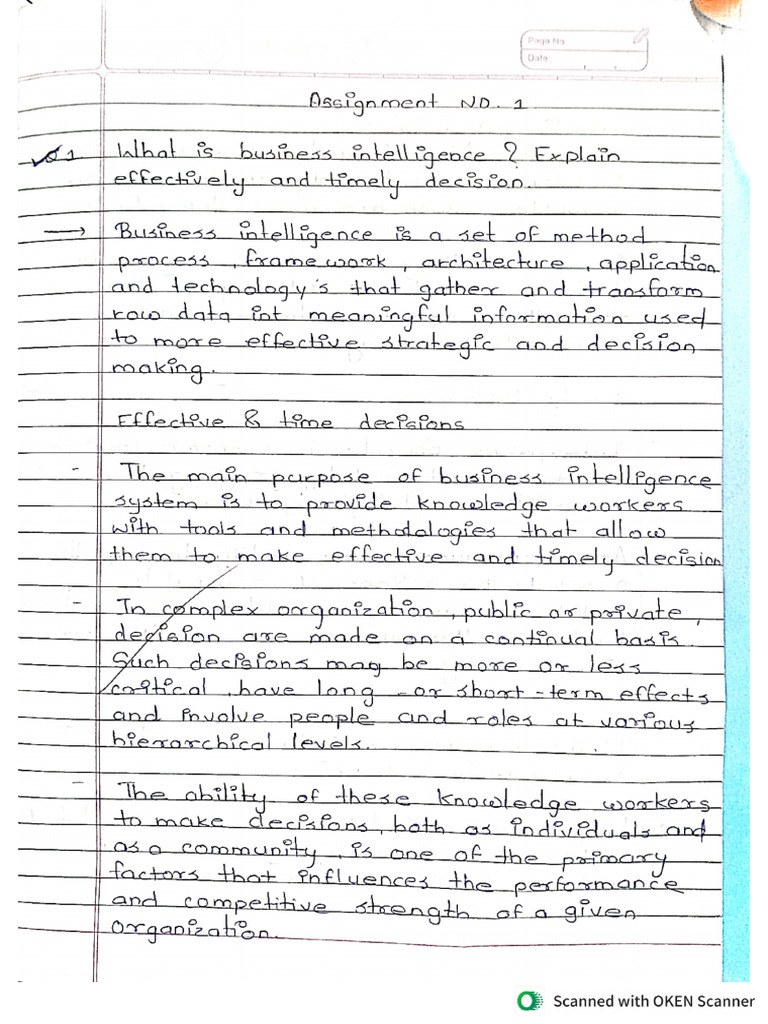 Page No.
Date
Assignment No. 1
Q1 What is business intelligence ? Explain
effectively and timely decision.
→ Business intelligence is a set of method
process , frame work , architecture , application
and technology's that gather and transform
row data int meaningful information used
to more effective strategic and decision
making.
Effective & time decisions
- The main purpose of business intelligence
system is to provide knowledge workers
with tools and methdologies that allow
them to make effective and timely decision
- In complex organization , public or private ,
decision are made on a continual basis.
Such decisions may be more or less
critical , have long -or short-term effects
and involve people and roles at various
hierarchical levels.
- The ability of these knowledge workers
to make decisions, both as individuals and
as a community , is one of the primary
factors that influences the performance
and competitive strength of a given
organization.
Scanned with OKEN Scanner